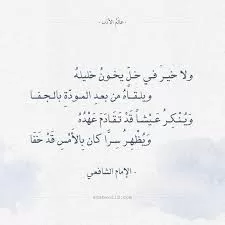 عالم الأدب
ولا خيرَ في خلٍّ يخونُ خليلهُ
ويلقاهُ من بعدِ المودّةِ بالجفا
وَيُنْكِرُ عَيْشاً قَدْ تَقَادَمَ عَهْدُهُ
وَيُظْهِرُ سِرًّا كان بِالأَمْسِ قَدْ خَفَا
- الإمام الشافعي -